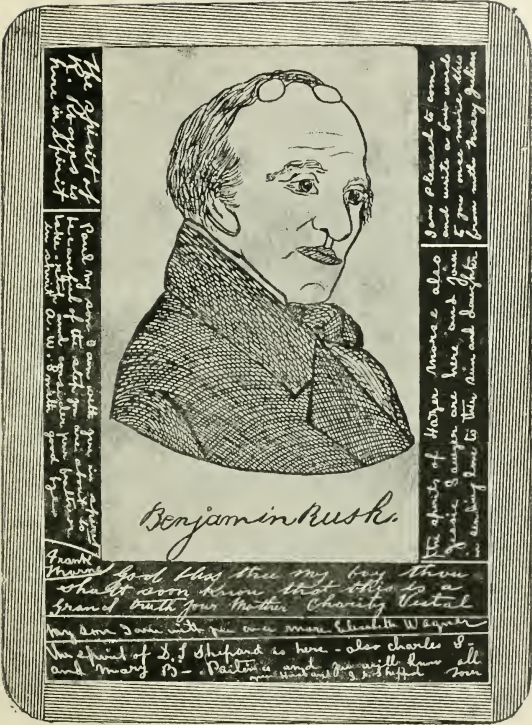 The spirit of
is
here in Spirit
Paul my son I am with you in spirit
be careful of the step you are about to
take
in spirit A. W. Smith good bye
I am pleased to come
and write a few words
to you once more this
from
the spirits of Hazer Morse also
Jessie Sawyer are here and join
in sending love to their son and daughter
Benjamin Rush.
Frank
God bless thee my boy thou
shalt soon know that this is a
Grand truth your Mother Charity Vestal
My son I am with you once more Elizabeth Wagner
The spirit of D. S Shepard is here - also Charles S-
and Mary B- Patience and you will know all
your Husband
soon